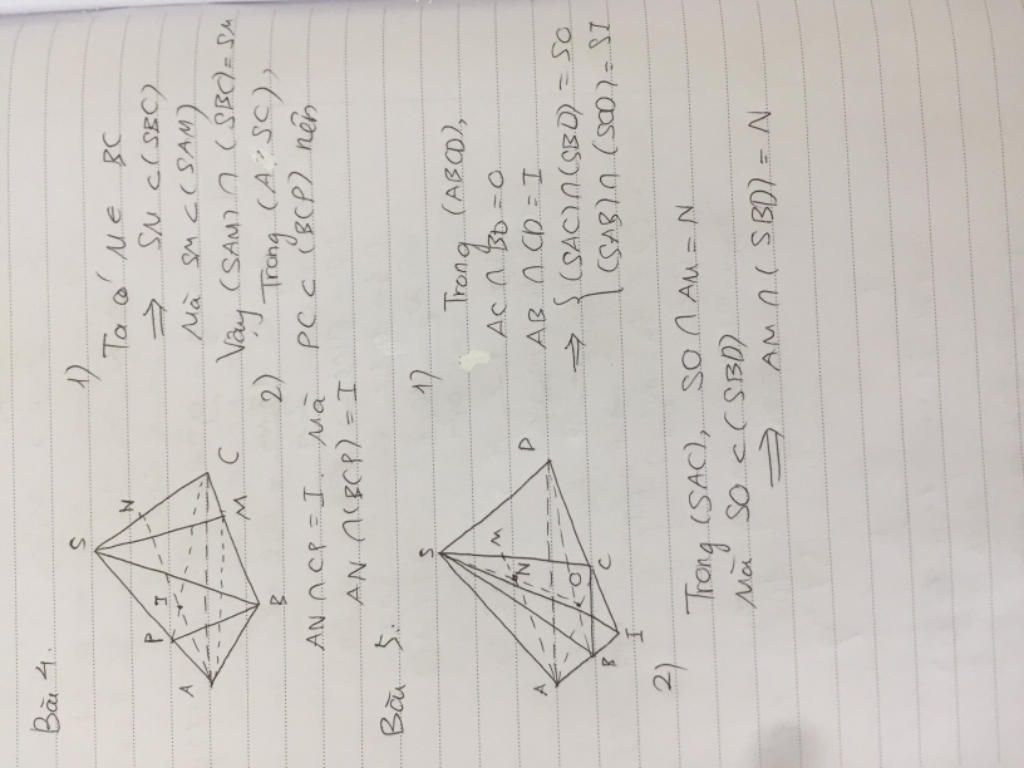 Bài 4.
S
P
I
N
A
C
M
B
1)
Ta có M ∈ BC
⇒ SM ⊂ (SBC)
Mà SM ⊂ (SAM)
Vậy (SAM) ∩ (SBC) = SM
2) Trong (ASC),
AN ∩ CP = I mà PC ⊂ (BCP) nên
AN ∩ (BCP) = I
Bài 5.
S
M
N
A
D
O
B
C
I
1)
Trong (ABCD),
AC ∩ BD = O
AB ∩ CD = I
⇒ { (SAC) ∩ (SBD) = SO
(SAB) ∩ (SCD) = SI
2)
Trong (SAC), SO ∩ AM = N
Mà SO ⊂ (SBD)
⇒ AM ∩ (SBD) = N